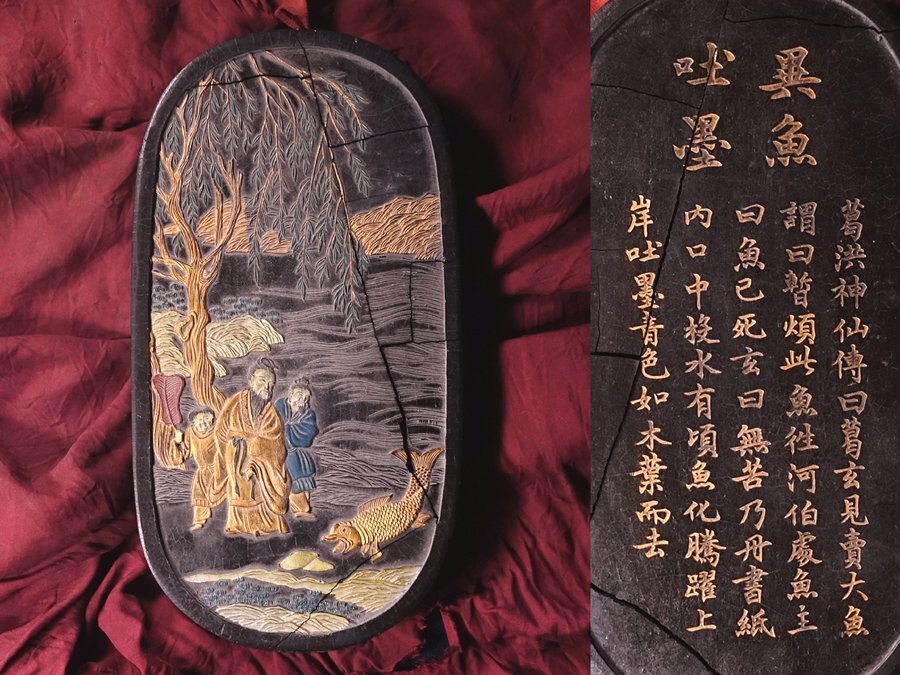 異魚
吐墨
葛洪神仙傳曰葛玄見賣大魚
謂曰暫煩此魚往河伯處魚主
曰魚已死玄曰無苦乃丹書紙
內口中投水有頃魚化騰躍上
岸吐墨青色如木葉而去